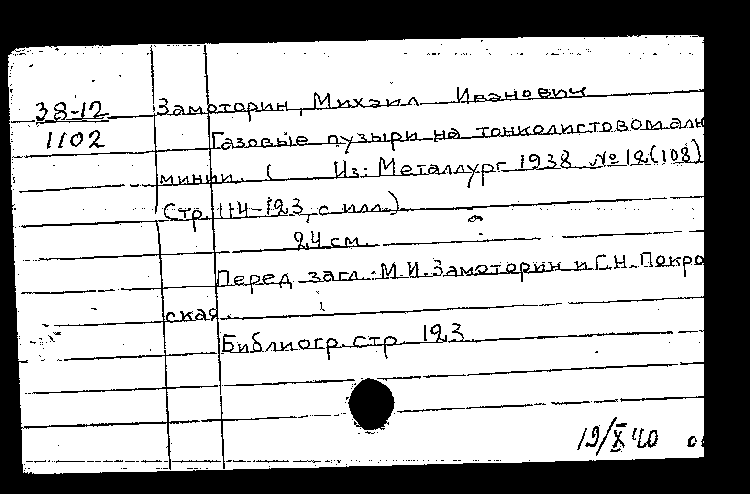 38-12 Замоторин, Михаил Иванович
1102 Газовые пузыри на тонколистовом алю
минии. ( Из: Металлург 1938 № 12(108)
Стр. 114-123, с илл.)
24 см.
Перед загл.: М.И. Замоторин и Г.Н. Покро
ская.
Библиогр. стр. 123
19/X 40